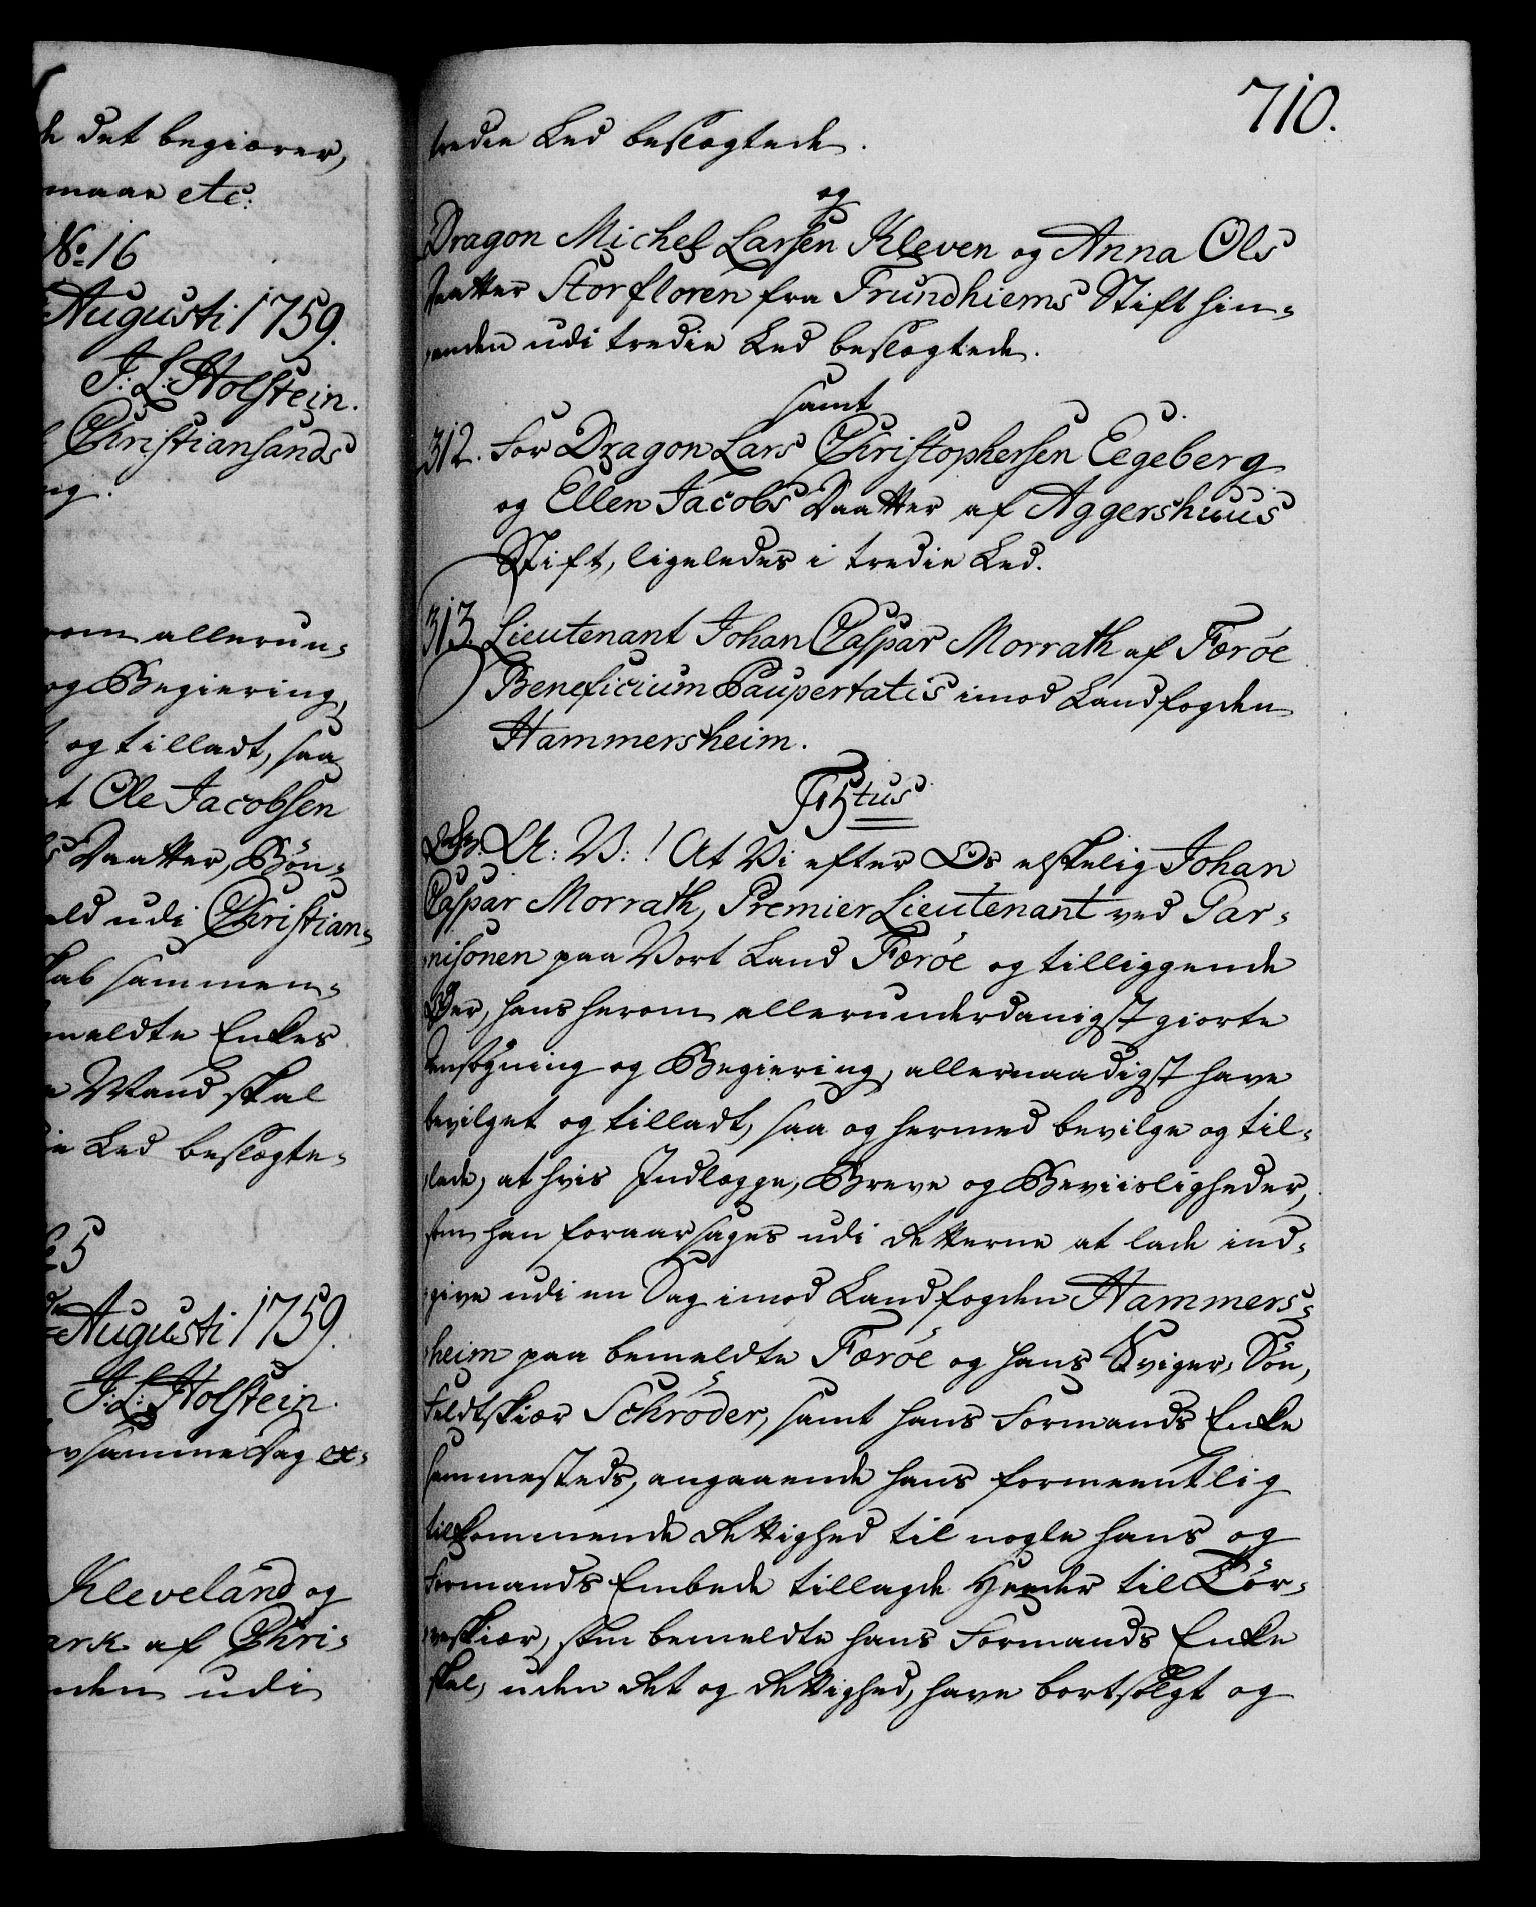 det begiærer,
maae etc:
No. 16
Augusti 1759.
J: L: Holstein.
Christiansands
allerun-
og Begiering,
og tilladt, saa
Ole Jacobsen
Daatter, Bøn-
udi Christian-
sammen-
meldte Enkes
Mand skal
Led beslægte-
5
Augusti 1759.
J: L: Holstein.
samme Dag ex-
Kleveland og
af Chri-
udi
710.
tredie Led beslægtede.
og
Dragon Michel Larsen Kleven og Anna Ols
Daatter Storfloren fra Trundhiems Stift hin-
anden udi tredie Led beslægtede.
samt
312. For Dragon Lars Christophersen Eegeberg
og Ellen Jacobs Daatter af Aggershuus
Stift, ligeledes i tredie Led.
313. Lieutenant Johan Caspar Morrath af Færöe
Beneficium Paupertatis imod Landfogden
Hammersheim.
F 5tus
Gr: A: V: ! At Vi efter Os elskelig Johan
Caspar Morrath, Premier Lieutenant ved Gar-
nisonen paa Vort Land Færöe og tilliggende
Øer, hans herom allerunderdanigst giorte
Ansøgning og Begiering, allernaadigst have
bevilget og tilladt, saa og hermed bevilge og til-
lade, at hvis Indlægge, Breve og Beviisligheder,
som han foraarsages udi Retterne at lade ind-
give udi en Sag imod Landfogden Hammers-
heim paa bemeldte Færöe og hans Sviger-Søn,
Feldtskiær Schrøder, samt hans Formands Enke
sammesteds, angaaende hans formeentlig
tilkommende Rettighed til nogle hans og
Formands Embede tillagde Heeder til Tör-
veskiær, som bemeldte hans Formands Enke
skal, uden Ret og Rettighed, have bortsolgt og